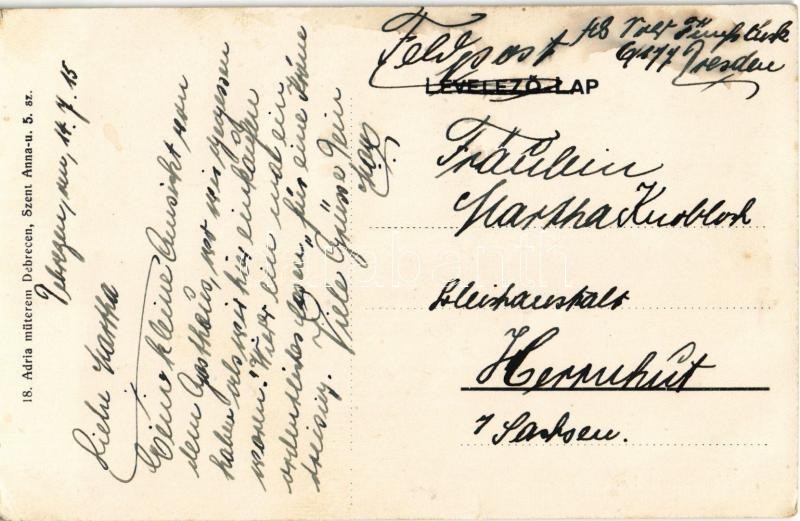 Feldpost
Dresden
LEVELEZŐ-LAP
Fräulein
Martha Knobloch
Herrnhut
i/ Sachsen.
18. Adria műterem Debrecen, Szent Anna-u. 5. sz.
Debreczen, am, 14. 7. 15
Liebe Martha
Eine kleine Ansicht von
dem Gasthaus, wo wir gegessen
haben als wir hier einkaufen
waren. Wieder ein mal ein
ordentliches für eine Krone
dreisig. Viele Grüsse Dein
Max
darabanth